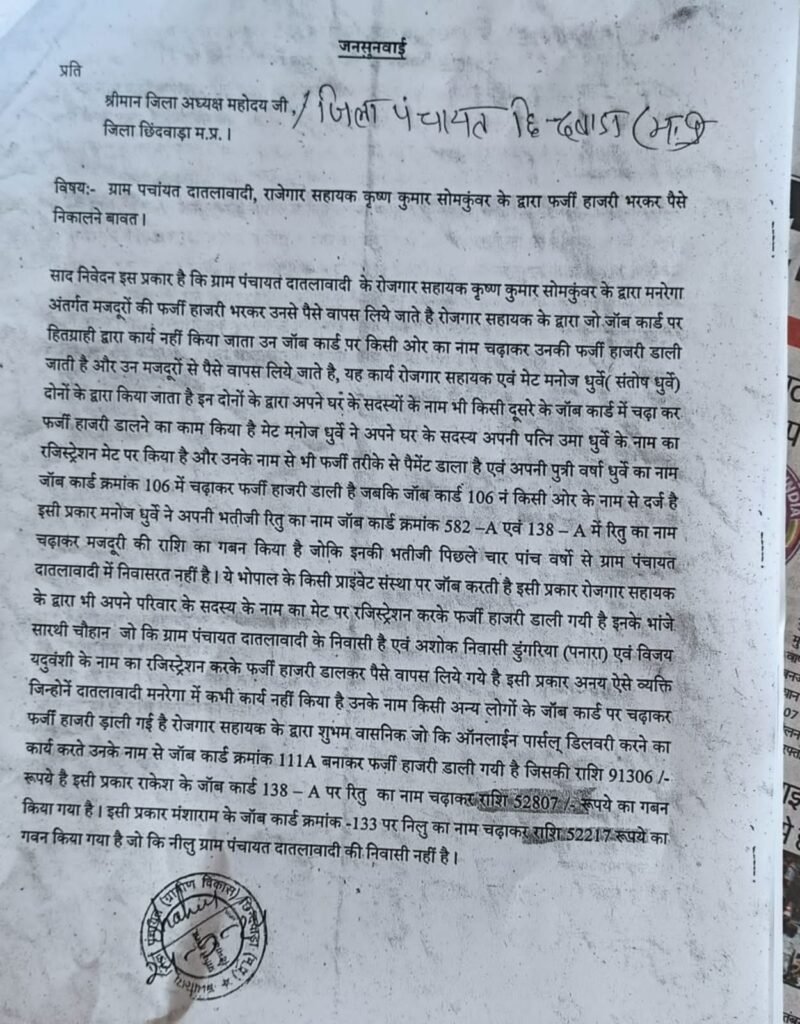 जनसुनवाई
प्रति
श्रीमान जिला अध्यक्ष महोदय जी, / जिला पंचायत छिन्दवाडा (म.प्र
जिला छिंदवाड़ा म.प्र.।
विषय:- ग्राम पचांयत दातलावादी, राजेगार सहायक कृष्ण कुमार सोमकुंवर के द्वारा फर्जी हाजरी भरकर पैसे
निकालने बावत।
साद निवेदन इस प्रकार है कि ग्राम पंचायत दातलावादी के रोजगार सहायक कृष्ण कुमार सोमकुंवर के द्वारा मनरेगा
अंतर्गत मजदूरों की फर्जी हाजरी भरकर उनसे पैसे वापस लिये जाते है रोजगार सहायक के द्वारा जो जॉब कार्ड पर
हितग्राही द्वारा कार्य नहीं किया जाता उन जॉब कार्ड पर किसी ओर का नाम चढ़ाकर उनकी फर्जी हाजरी डाली
जाती है और उन मजदूरों से पैसे वापस लिये जाते है, यह कार्य रोजगार सहायक एवं मेट मनोज धुर्वे( संतोष धुर्वे)
दोनों के द्वारा किया जाता है इन दोनों के द्वारा अपने घर के सदस्यों के नाम भी किसी दूसरे के जॉब कार्ड में चढ़ा कर
फर्जी हाजरी डालने का काम किया है मेट मनोज धुर्वे ने अपने घर के सदस्य अपनी पत्नि उमा धुर्वे के नाम का
रजिस्ट्रेशन मेट पर किया है और उनके नाम से भी फर्जी तरीके से पैमेंट डाला है एवं अपनी पुत्री वर्षा धुर्वे का नाम
जॉब कार्ड क्रमांक 106 में चढ़ाकर फर्जी हाजरी डाली है जबकि जॉब कार्ड 106 नं किसी ओर के नाम से दर्ज है
इसी प्रकार मनोज धुर्वे ने अपनी भतीजी रितु का नाम जॉब कार्ड क्रमांक 582 –A एवं 138 – A में रितु का नाम
चढ़ाकर मजदूरी की राशि का गबन किया है जोकि इनकी भतीजी पिछले चार पांच वर्षो से ग्राम पंचायत
दातलावादी में निवासरत नहीं है। ये भोपाल के किसी प्राइवेट संस्था पर जॉब करती है इसी प्रकार रोजगार सहायक
के द्वारा भी अपने परिवार के सदस्य के नाम का मेट पर रजिस्ट्रेशन करके फर्जी हाजरी डाली गयी है इनके भांजे
सारथी चौहान जो कि ग्राम पंचायत दातलावादी के निवासी है एवं अशोक निवासी डुंगरिया (पनारा) एवं विजय
यदुवंशी के नाम का रजिस्ट्रेशन करके फर्जी हाजरी डालकर पैसे वापस लिये गये है इसी प्रकार अनय ऐसे व्यक्ति
जिन्होनें दातलावादी मनरेगा में कभी कार्य नहीं किया है उनके नाम किसी अन्य लोगों के जॉब कार्ड पर चढ़ाकर
फर्जी हाजरी ड़ाली गई है रोजगार सहायक के द्वारा शुभम वासनिक जो कि ऑनलाईन पार्सल् डिलवरी करने का
कार्य करते उनके नाम से जॉब कार्ड क्रमांक 111A बनाकर फर्जी हाजरी डाली गयी है जिसकी राशि 91306 /-
रूपये है इसी प्रकार राकेश के जॉब कार्ड 138 – A पर रितु का नाम चढ़ाकर राशि 52807 /- रूपये का गबन
किया गया है। इसी प्रकार मंशाराम के जॉब कार्ड क्रमांक -133 पर निलु का नाम चढ़ाकर राशि 52217 रूपये का
गवन किया गया है जो कि नीलु ग्राम पंचायत दातलावादी की निवासी नहीं है।